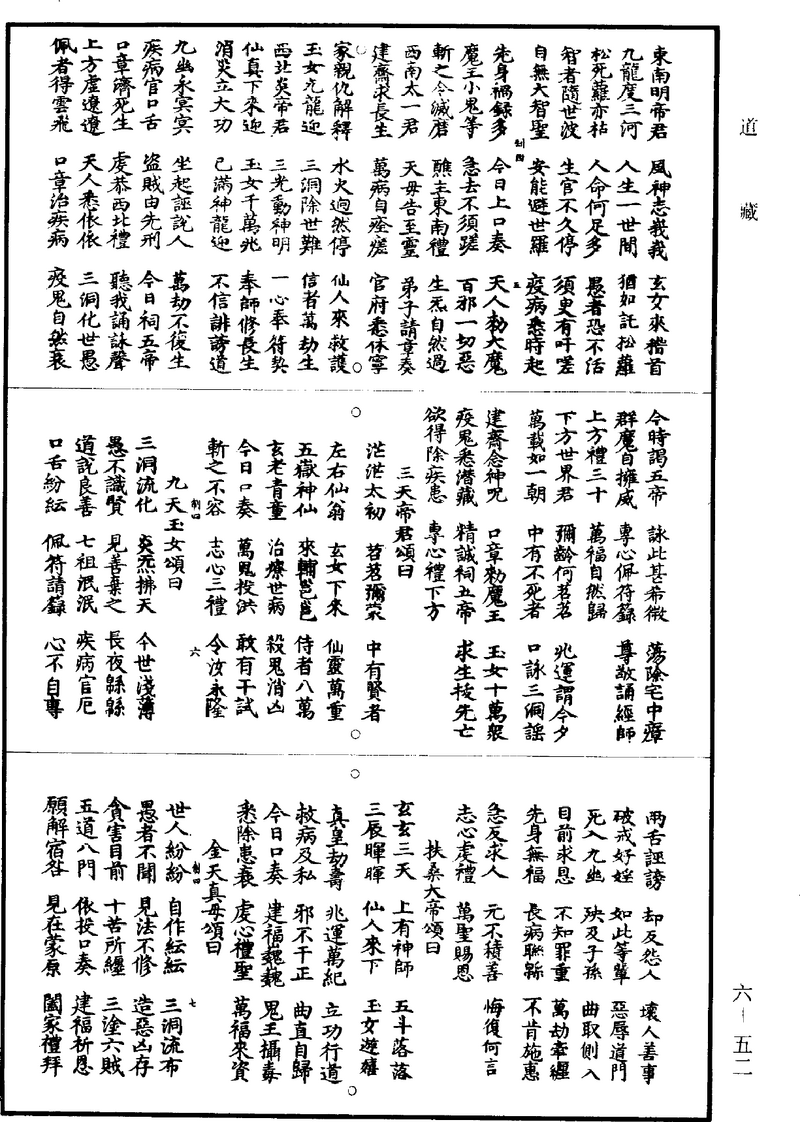 道藏
東南明帝君　風神志我我　玄女來稽首
九龍度三河　人生一世間　猶如託松蘿
松死蘿亦枯　人命何足多　愚者恐不活
智者隨世波　生官不久停　須臾有吁嗟
自無大智聖　安能避世羅　疫病悉時起
制四　五
先身禍錄多　今日上口奏　天人勑大魔
魔王小鬼等　急去不須蹉　百邪一切惡
斬之令滅磨　醮主東南禮　生炁自然過
西南太一君　天毋告至靈　弟子請章奏
建齋求長生　萬病自痊瘥　官府悉休寧
家親仇解釋　水火逈然停　仙人來救護
玉女九龍迎　三洞除世難　信者萬劫生
西北炎帝君　三光動神明　一心奉符契
仙真下來迎　玉女千萬兆　奉師修長生
消災立大功　已滿神龍迎　不信誹謗道
九幽永冥冥　坐起誣說人　萬劫不復生
疾病官口舌　盜賊由先刑　今日祠五帝
口章濟死生　虔恭西北禮　聽我誦詠聲
上方虛遼遼　天人悉依依　三洞化世愚
佩者得雲飛　口章治疾病　疫鬼自然衰
今時謁五帝　詠此甚希微　蕩除宅中瘴
群魔自擁威　專心佩符籙　尊敬誦經師
上方禮三十　萬福自然歸
下方世界君　彌齡何苕苕　兆運謂今夕
萬載如一朝　中有不死者　口詠三洞謡
建齋念神呪　口章勑魔王　玉女十萬衆
疫鬼悉潛藏　精誠祠五帝　求生拔先亡
欲得除疾患　專心禮下方
三天帝君頌曰
茫茫太初　苕苕彌蒙　中有賢者
左右仙翁　玄女下來　仙靈萬重
五嶽神仙　來輔邕邕　侍者八萬
玄老青童　治療世病　殺鬼消凶
今日口奏　萬鬼投洪　敢有干試
斬之不容　志心三禮　令汝永隆
制四　六
九天玉女頌曰
三洞流化　炎炁拂天　今世淺薄
愚不識賢　見善棄之　長夜緜緜
道說良善　七祖泯泯　疾病官厄
口舌紛紜　佩符請籙　心不自專
兩舌誣謗　却反怨人　壞人善事
破戒好婬　如此等輩　惡辱道門
死入九幽　殃及子孫　曲取側入
目前求恩　不知罪重　萬劫牽纏
先身無福　長病聯緜　不肯施惠
急反求人　元不積善　悔復何言
志心虔禮　萬聖賜恩
扶桑大帝頌曰
玄玄三天　上有神師　五斗落落
三辰暉暉　仙人來下　玉女遊嬉
真皇劫壽　兆運萬紀　立功行道
救病及私　邪不干正　曲直自歸
今日口奏　建福巍巍　鬼王攝毒
悉除患衰　虔心禮聖　萬福來資
金天真母頌曰
制四　七
世人紛紛　自作紜紜　三洞流布
愚者不聞　見法不修　造惡凶存
貪害目前　十苦所纏　三塗六賊
五道八門　依投口奏　建福祈恩
願解宿咎　見在蒙原　闔家禮拜
六－五二